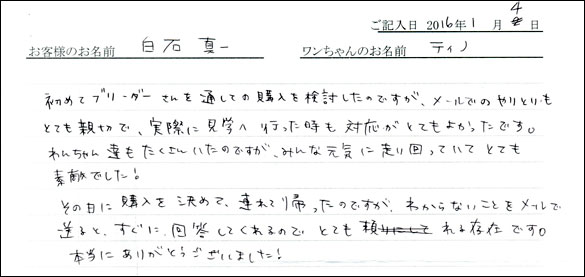 ご記入日 2016年 1 月 4 日
お客様のお名前 白石 真一 ワンちゃんのお名前 ティノ
初めてブリーダーさんを通しての購入を検討したのですが、メールでのやりとりも
とても親切で、実際に見学へ行った時も対応がとてもよかったです。
わんちゃん達もたくさんいたのですが、みんな元気に走り回っていてとても
素敵でした!
その日に購入を決めて、連れて帰ったのですが、わからないことをメールで
送ると、すぐに回答してくれるのでとても頼りにして れる存在です。
本当にありがとうございました!